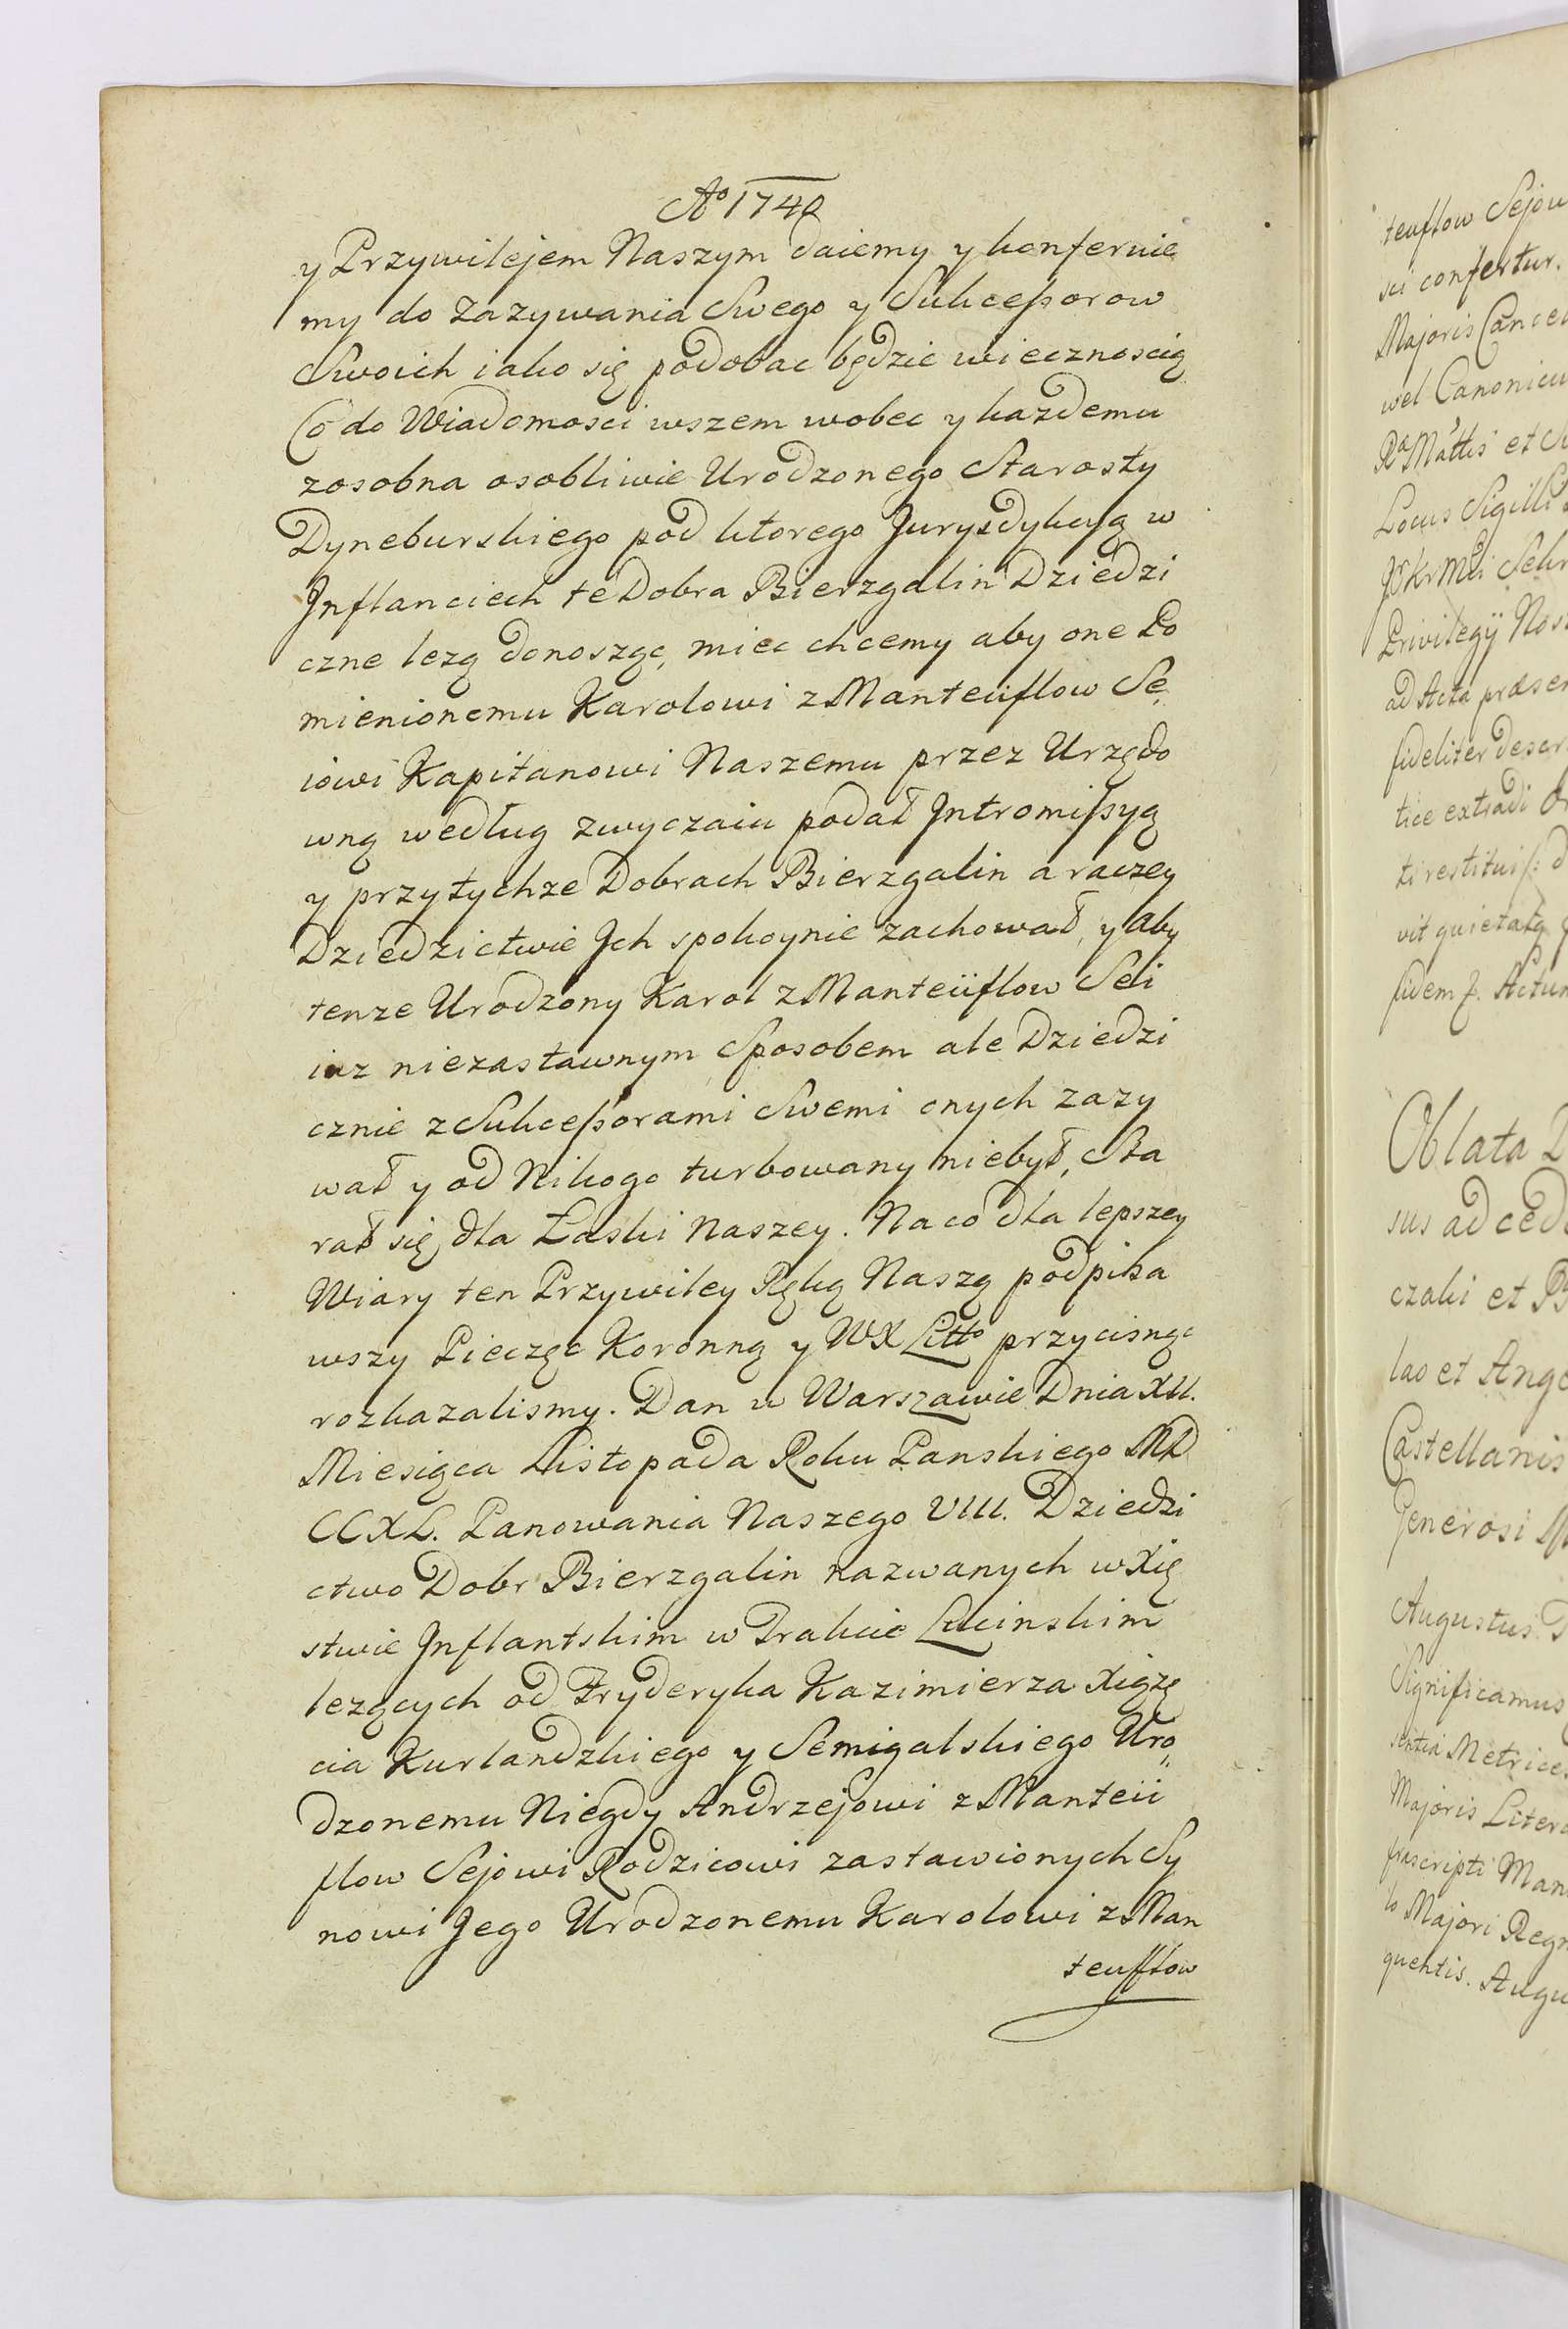 Aº 1742
y Przywilejem Naszym daiemy y konferuie
my do Zazywania Swego y Sukceßorow
Swoich iako się podobac będzie wiecznoscią
Co do Wiadomosci wszem wobec y kazdemu
zosobna osobliwie Urodzonego Starosty
Dyneburskiego pod ktorego Jurysdykcyą w
Inflanciech te Dobra Bierzgalin Dziedzi
czne lezą donosząc, miec chcemy aby one Po
mienionemu Karolowi z Manteüflow Se
iowi Kapitanowi Naszemu przez Urzędo
wną według zwyczaiu podał Intromißyą
y przytychze Dobrach Bierzgalin a raczey
Dziedzictwie Ich spokoynie zachował, y aby
tenze Urodzony Karol z Manteüflow Sei
iuz niezastawnym Sposobem ale Dziedzi
cznie z Sukceßorami Swemi onych zazy
wał y od Nikogo turbowany niebył, Sta
rał się dla Łaski Naszey. Naco dla lepszey
Wiary ten Przywiley Ręką Naszą podpisa
wszy Pieczęc Koronną y WX Littº przycisnąc
rozkazalismy. Dan w Warszawie Dnia XII.
Miesiąca Listopada Roku Panskiego MD
CCXL. Panowania Naszego VIII. Dziedzi
ctwo Dobr Bierzgalin nazwanych w Xię
stwie Inflantskim w Trakcie Lucinskim
lezących od Fryderyka Kazimierza Xiązę
cia Kurlandzkiego y Semigalskiego Uro
dzonemu Niegdy Andrzejowi z Manteü
flow Sejowi Rodzicowi zastawionych Sy
nowi Jego Urodzonemu Karolowi z Man
teufflow
teuflow Sejow
sci confertur.
Majoris Cancel
wel Canonicu
Locus Sigilli
Privilegÿ Nos
ad Acta præsen
fideliter descr
tice extradi
ti restituis: d
vit quietatq
fidem f. Actum
Oblata
sus ad ced
czaki et
lao et Ange
Castellanis
Generosi
Augustus
Significamus
sentia Metrices
Majoris Litera
frascripti Man
lo Majori Regn
quentis. Augu